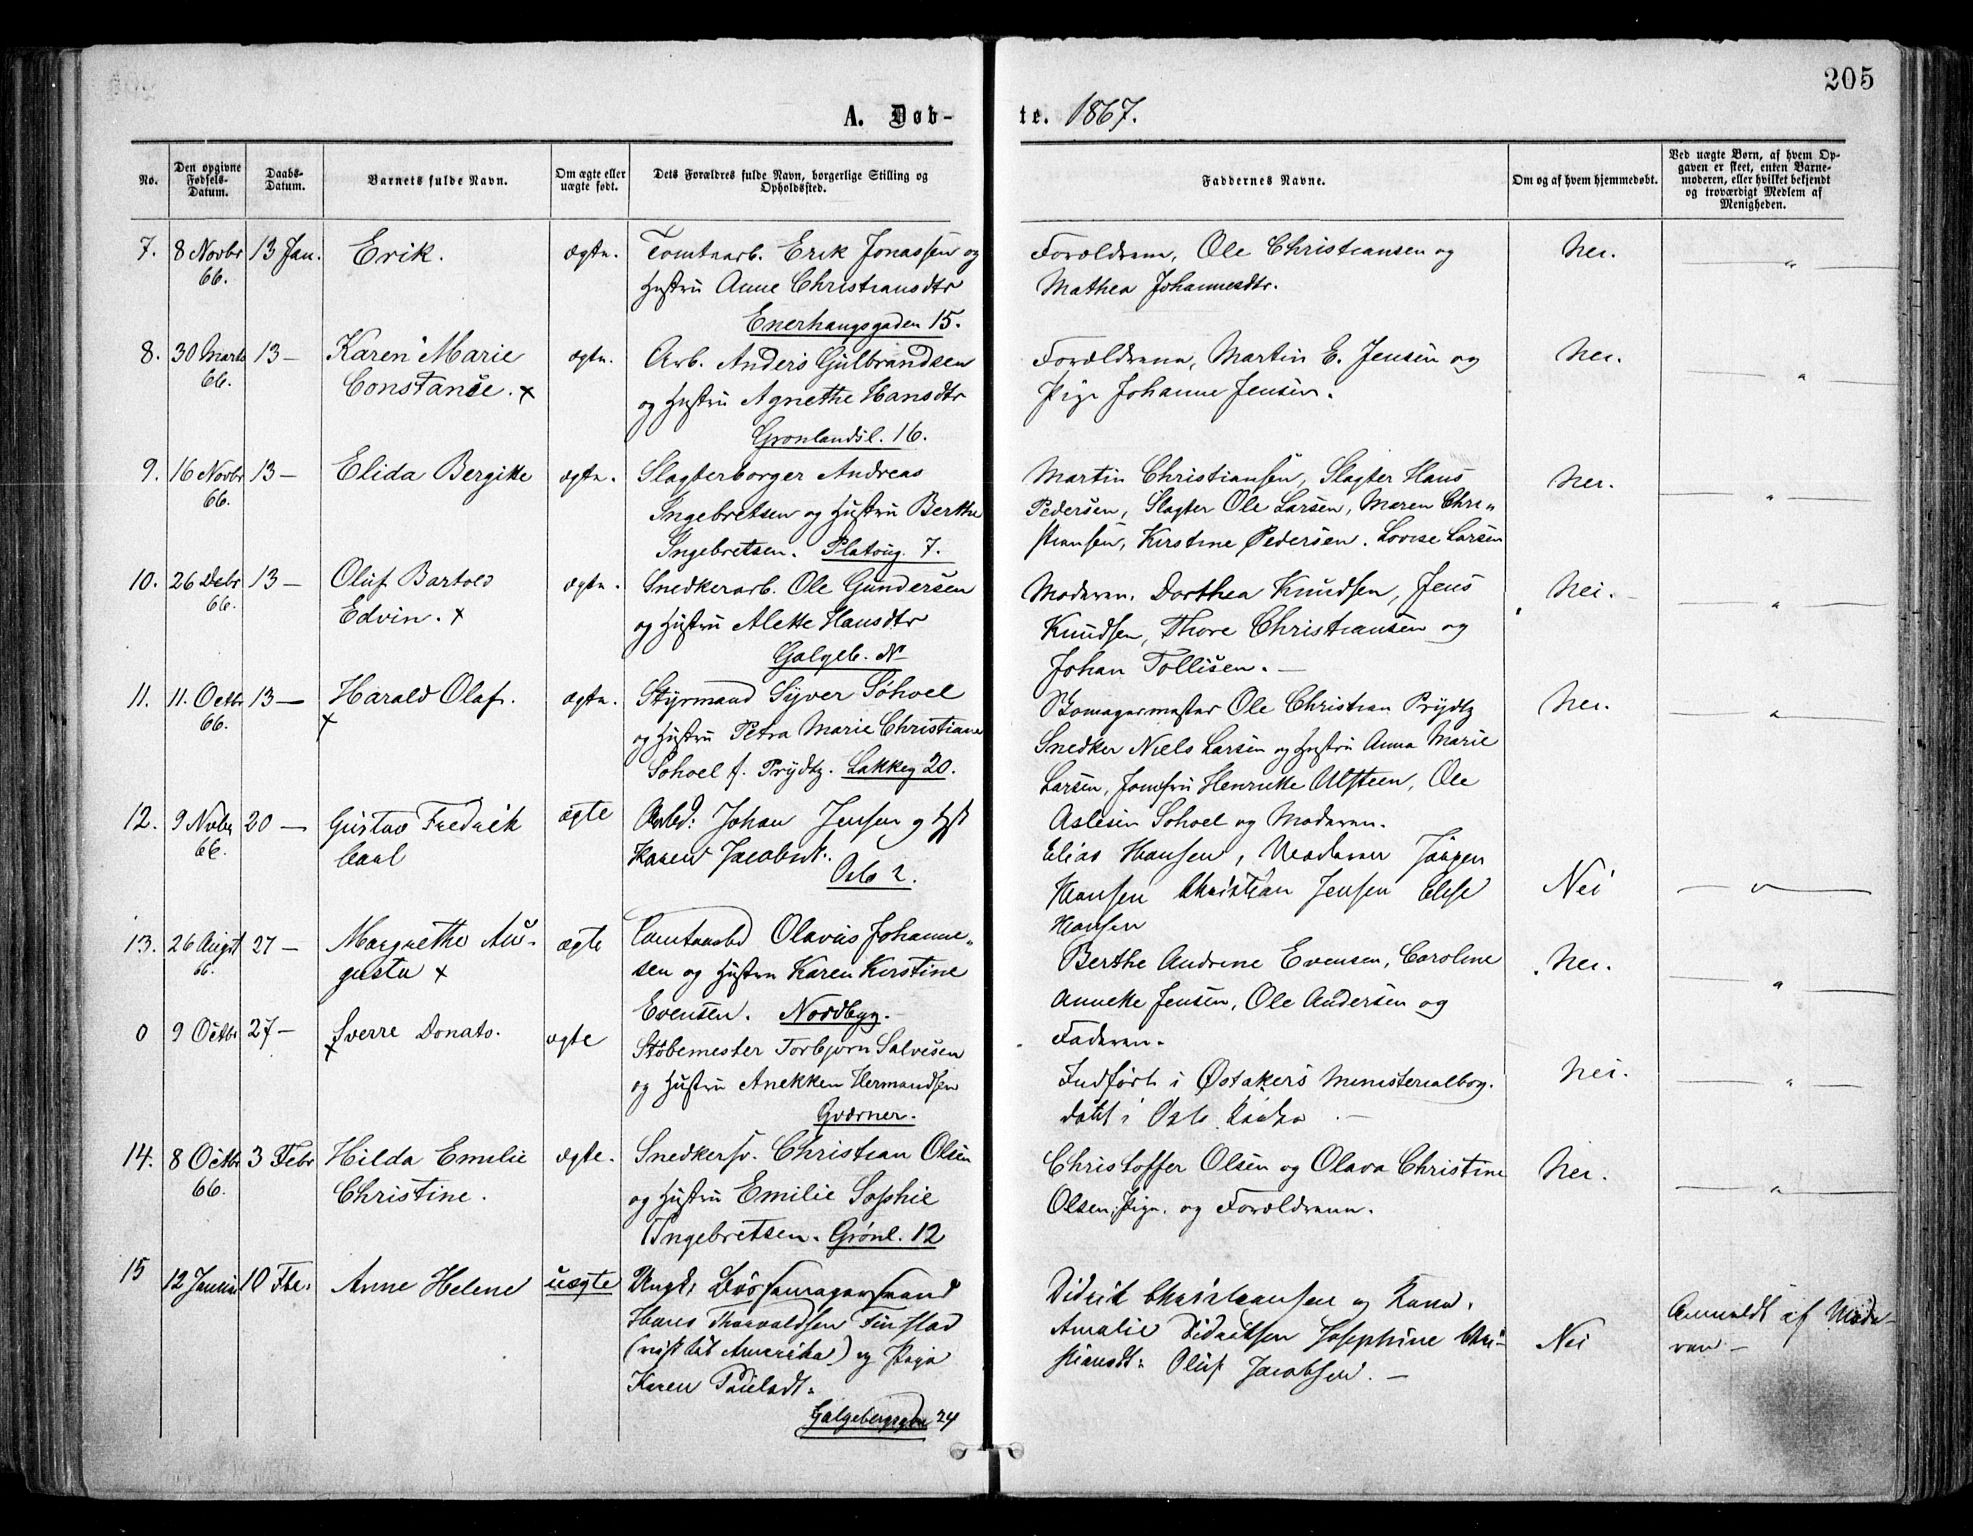 205
A. Døb-
te. 1867.
No.
Den opgivne
Fødsels-
Datum.
Daabs-
Datum.
Barnets fulde Navn.
Om ægte eller
uægte født.
Dets Forældres fulde Navn, borgerlige Stilling og
Opholdssted.
Faddernes Navne.
Om og af hvem hjemmedøbt.
Ved uægte Børn, af hvem Op-
gaven er skeet, enten Barne-
moderen, eller hvilket bekjendt
og troværdigt Medlem af
Menigheden.
7. 8 Novbr 13 Jan. Erik. ægte. Tomtearb. Erik Jonassen og
66. Hustru Anne Christiansdtr
Enerhaugsgaden 15.
Forældrene, Ole Christiansen og
Mathea Johannesdtr.
Nei.
"
8. 30 Marts 13 — Karen Marie ægte. Arb. Anders Gulbrandsen
66. Constance. x og Hustru Agnethe Hansdtr
Grønlandsl. 16.
Forældrene, Martin E. Jensen og
Pige Johanne Jensen.
Nei.
"
9. 16 Novbr 13 — Elida Bergitte ægte. Slagterborger Andreas
66. Ingebretsen og Hustru Berthe
Ingebretsen. Platoug. 7.
Martin Christiansen, Slagter Hans
Pedersen, Slagter Ole Larsen, Maren Chri-
stiansen, Kirstine Pedersen. Lovise Larsen
Nei.
"
10. 26 Debr 13 — Oluf Bartold ægte. Snedkerarb. Ole Gundersen
66. Edvin. x og Hustru Alette Hansdtr
Galgeb. N—
Moderen. Dorthea Knudsen, Jens
Knudsen, Thore Christiansen og
Johan Tollisen. —
Nei.
"
11. 11. Octbr 13 — Harald Olaf. ægte. Styrmand Syver Sohoel
66. x og Hustru Petra Marie Christiane
Sohoel f. Prydtz. Lakkeg 20.
Skomagermester Ole Christian Prydtz
Snedker Niels Larsen og Hustru Anna Marie
Larsen, Jomfru Henrikke Ulsteen, Ole
Aslesen Sohoel og Moderen.
Nei.
"
12. 9 Novbr 20 — Gustav Fredrik ægte Arbd: Johan Jensen og Hst
66. Carl Karen Jacobsd.
Oslo 2.
Elias Hansen, Moderen Jørgen
Hansen Christian Jensen Else
Hansen
Nei
"
13. 26 Augst 27 — Margrethe Au- ægte Tomtearbd Olavus Johanne-
66. gusta x sen og Hustru Karen Kirstine
Evensen. Nordbyg.
Berthe Andrine Evensen, Caroline
Anneke Jensen, Ole Andersen og
Faderen.
Nei.
"
0 9 Octbr 27 — Sverre Donato. ægte Støbemester Torbjørn Salvesen
x og Hustru Anekken Hermandsen
Qværner.
Indført i Østakers Ministerialbog.
døbt i Oslo Kirke —
Nei.
"
14. 8 Octbr 3 Febr Hilda Emilie ægte. Snedkersv. Christian Olsen
66. Christine. og Hustru Emilie Sophie
Ingebretsen. Grønl. 12
Christoffer Olsen og Olava Christine
Olsen, Pige. og Forældrene.
Nei.
"
15 12 Januar 10 Fbr. Anne Helene uægte Ungk: Bøssemagersvend
Hans Thorvaldsen Finstad
(reist til Amerika) og Pige
Karen Paulsdt:
Galgebergsgden 24
Didrik Christiansen og Kone.
Amalie Didriksen Josephine Chri-
stiansdt: Oluf Jacobsen. —
Nei
Anmeldt af Mode-
ren. —